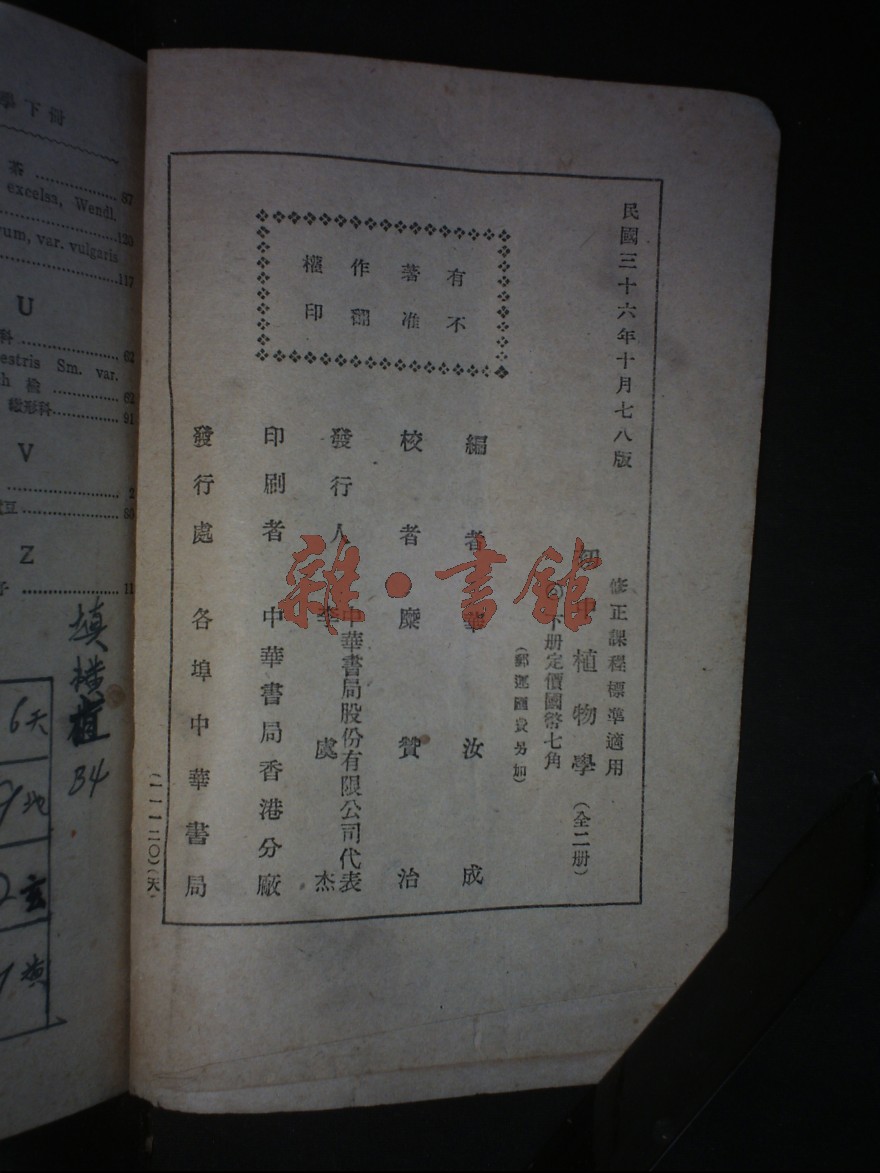 民國三十六年十月七八版
修正課程標準適用
初中植物學(全二册)
下册定價國幣七角
(郵運匯費另加)
有著作權
不准翻印
編者華汝成
校者糜贊治
發行人中華書局股份有限公司代表
李虞杰
印刷者中華書局香港分廠
發行處各埠中華書局
(一一一二〇)(天)
雜·書館
學下冊
茶 87
excelsa, Wendl.
120
var. vulgaris
117
U
科 62
Sm. var.
62
繖形科 91
V
2
豆
Z
子
填橫直
34
6天
9地
玄
橫